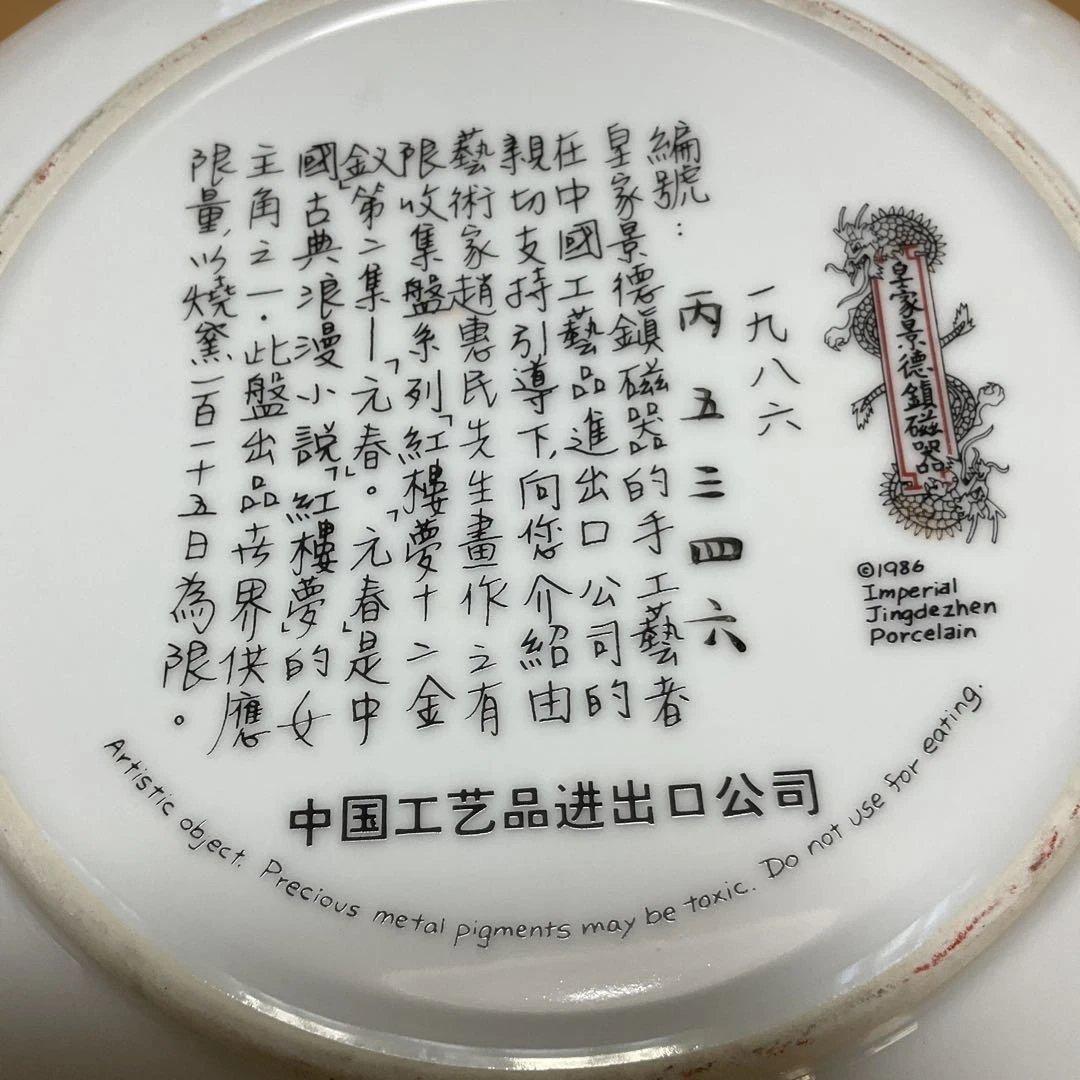 皇家景德鎮磁器
©1986
Imperial
Jingdezhen
Porcelain
一九八六
編號：
丙五三四六
皇家景德鎮磁器的手工藝者
在中國工藝品進出口公司的
親切支持引導下，向您介紹由
藝術家趙惠民先生畫作之有
限收集盤系列「紅樓夢十二金
釵」第二集—「元春」。「元春」是中
國古典浪漫小說「紅樓夢」的女
主角之一．此盤出品世界供應
限量，以燒窯一百一十五日為限。
中国工艺品进出口公司
Artistic object. Precious metal pigments may be toxic. Do not use for eating.